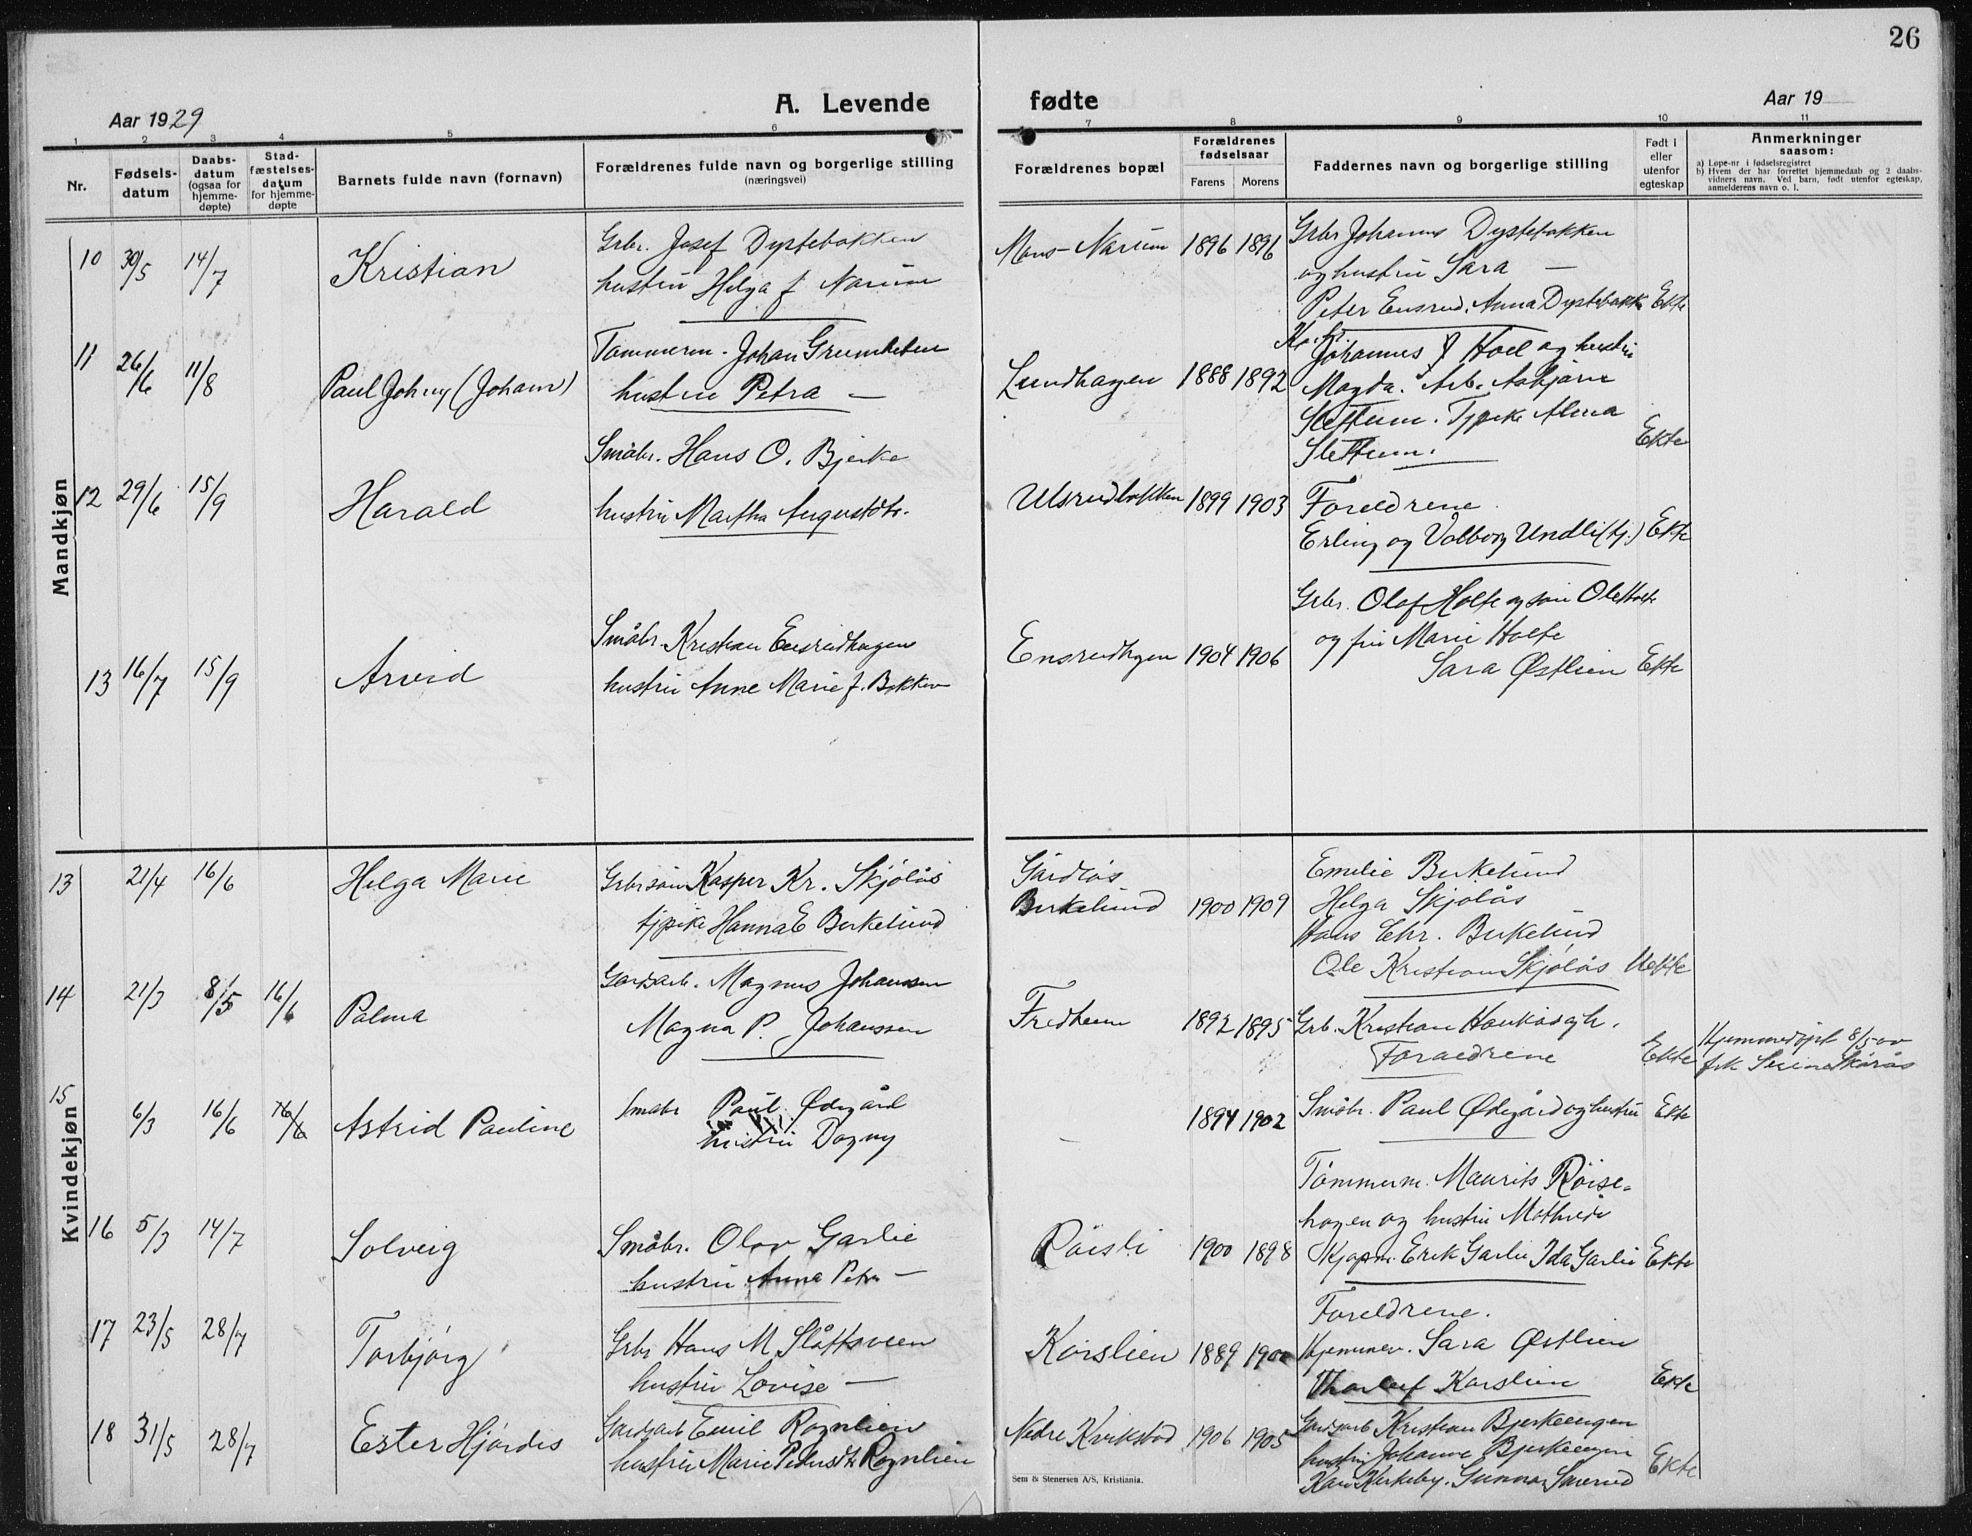 26
Aar 1929
A. Levende fødte
Aar 19
1 2 3 4 5 6 7 8 9 10 11
Nr.
Fødsels-
datum
Daabs-
datum
(ogsaa for
hjemme-
døpte)
Stad-
fæstelses-
datum
for hjemme-
døpte
Barnets fulde navn (fornavn)
Forældrenes fulde navn og borgerlige stilling
(næringsvei)
Forældrenes bopæl
Forældrenes
fødselsaar
Farens Morens
Faddernes navn og borgerlige stilling
Født i
eller
utenfor
egteskap
Anmerkninger
saasom:
a) Løpe-nr i fødselsregistret
b) Hvem der har forrettet hjemmedaab og 2 daabs-
vidners navn. Ved barn, født utenfor egteskap,
anmelderens navn o. l.
Mandkjøn
10 30/5 14/7 Kristian
Grbr. Josef Dystebakken
hustru Helga f Narum
Mons-Narum 1896 1896
Grbr Johannes Dystebakken
og hustru Sara —
Peter Ensrud. Anna Dystebakk Ekte
11 26/6 11/8 Paul Johny (Johan)
Tømmerm. Johan Grumheten
hustru Petra —
Lundhagen 1888 1892
Johannes Hoel og hustru
Magda. Arb. Asbjørn
Slettum. Tjpike Alma
Slettum. Ekte
12 29/6 15/9 Harald
Småbr. Hans O. Bjerke
hustru Martha Augustdtr.
Ulsrudbakken 1899 1903
Foreldrene
Erling og Valborg Undli (tj.) Ekte
13 16/7 15/9 Arvid
Småbr. Kristian Ensrudhagen
hustru Anne Marie f. Bakken
Ensrudhgen 1904 1906
Grbr. Olaf Holte og søn Ole Holte
og fru Marie Holte
Sara Østlien Ekte
Kvindekjøn
13 21/4 16/6 Helga Marie
Grbrsøn Kasper Kr. Skjølås
tjpike Hanna E Berkelund
Gårdløs
Berkelund 1900 1909
Emilie Berkelund
Helga Skjølås
Hans Chr. Berkelund
Ole Kristian Skjølås Uekte
14 21/3 8/5 16/6 Palma
Gardsarb. Magnus Johanssen
Magna P. Johanssen
Fredheim 1892 1895
Grb. Kristian Haukåsgh.
Foraeldrene Ekte
Hjemmedøpt 8/5 av
frk Skårås
15 6/3 16/6 16/6 Astrid Pauline
Småbr Paul Ødegård
hustru Dagny
— 1894 1902
Småbr. Paul Ødegård og hustru Ekte
16 5/3 14/7 Solveig
Småbr. Olav Garlie
hustru Anna Petra —
Røisli 1900 1898
Tømmerm. Maurits Røise-
hagen og hustru Mathilde
Kjøpm. Erik Garlie Ida Garlie Ekte
17 23/5 28/7 Torbjørg
Grbr Hans M. Slåttsveen
hustru Lovise —
Korslien 1889 1900
Foreldrene.
Hjemmev. Sara Østlien
Thorleif Korslien Ekte
18 31/5 28/7 Ester Hjørdis
Gardsarb Emil Rognlien
hustru Marie Pedersdt. Rognlien
Nedre Kvikstad 1906 1905
Gardsarb Kristian Bjerkeengen
hustru Johanne Bjerkeengen
Kari Kirkeby. Gunnar Ekte
Sem & Stenersen A/S, Kristiania.